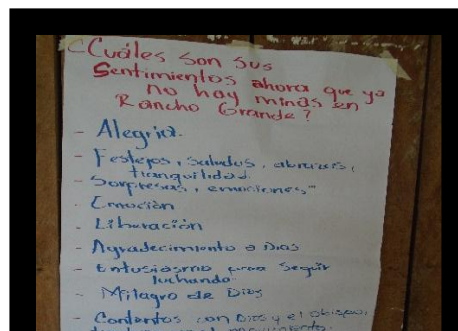 ¿Cuáles son sus
Sentimientos ahora que ya
no hay minas en
Rancho Grande?
- Alegria.
- Festejos, saludos, abrazos,
tranquilidad.
- Sorpresas, emociones"
- Emoción
- Liberación
- Agradecimiento a Dios
- Entusiasmo para seguir
luchando.
- Milagro de Dios
- Contentos con Dios y el obispo,